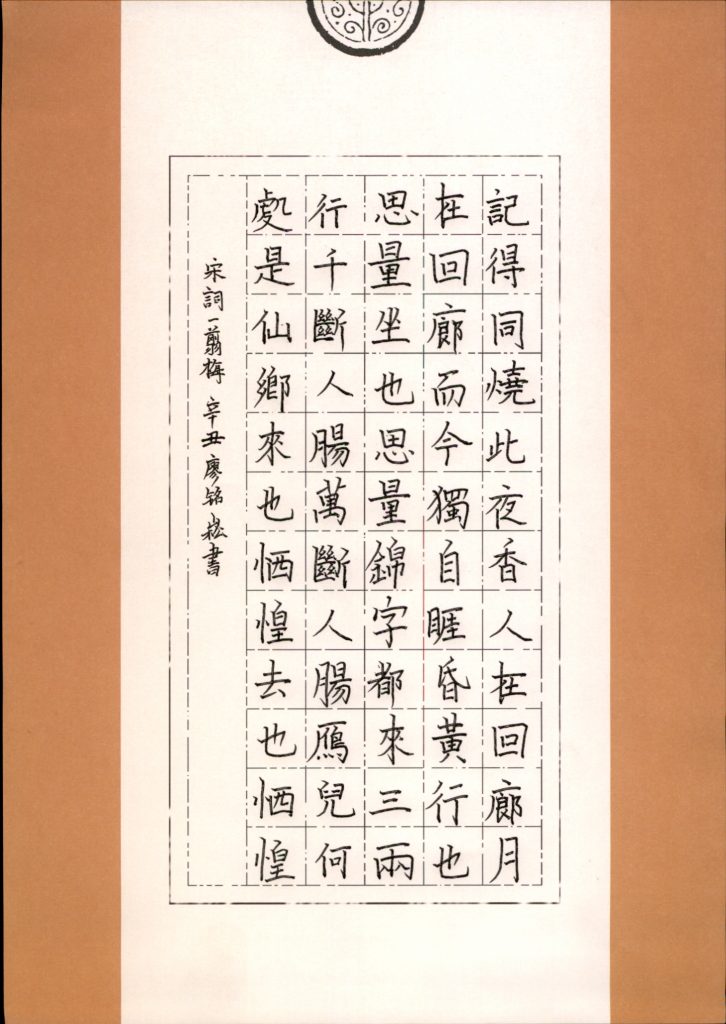 記得同燒此夜香人在回廊月
在回廊而今獨自睚昏黃行也
思量坐也思量錦字都來三兩
行千斷人腸萬斷人腸鴈兒何
處是仙鄉來也恓惶去也恓惶
宋詞一翦梅 辛丑廖銘崧書